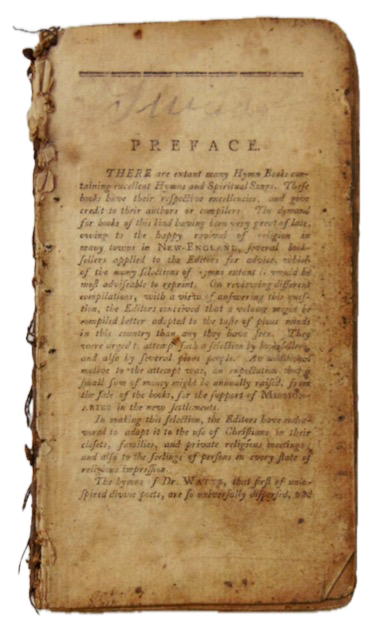 PREFACE.
THERE are extant many Hymn Books con-
taining excellent Hymns and Spiritual Songs. These
books have their respective excellencies, and give
credit to their authors or compilers. The demand
for books of this kind having been very great of late,
owing to the happy revival of religion in
many towns in NEW-ENGLAND, several book-
sellers applied to the Editors for advice, which
of the many selections of hymns extant it would be
most adviseable to reprint. On reviewing different
compilations, with a view of answering this ques-
tion, the Editors conceived that a volume might be
compiled better adapted to the taste of pious minds
in this country than any they have seen. They
were urged to attempt such a selection by booksellers,
and also by several pious people. An additional
motive to the attempt was, an expectation that a
small sum of money might be annually raised, from
the sale of the books, for the support of MISSION-
ARIES in the new settlements.
In making this selection, the Editors have endea-
vored to adapt it to the use of Christians in their
closets, families, and private religious meetings,
and also to the feelings of persons in every state of
religious impression.
The hymns of Dr. WATTS, that first of unin-
spired divine poets, are so universally dispersed, and